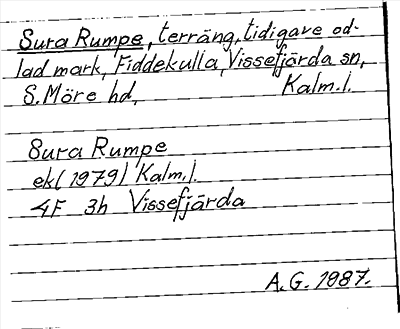 Sura Rumpe, terräng, tidigare od-
lad mark, Fiddekulla, Vissefjärda sn,
S. Möre hd, Kalm.l.
Sura Rumpe
ek(1979) Kalm.l.
4F 3h Vissefjärda
A.G. 1987.